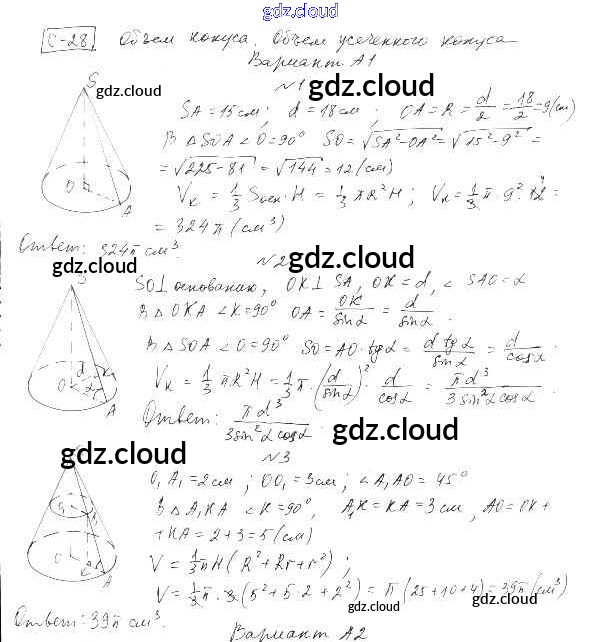 gdz.cloud
С-28 Объем конуса. Объем усеченного конуса
Вариант А1
gdz.cloud gdz.cloud
№1
S
SA = 15 см; d = 18 см; OA = R = d/2 = 18/2 = 9 (см)
В △ SOA ∠O = 90° SO = √SA² - OA² = √15² - 9² =
= √225 - 81 = √144 = 12 (см)
Vк = 1/3 Sосн · H = 1/3 πR²H; Vк = 1/3 π · 9² · 12 =
O
A
= 324π (см³)
Ответ: 324π см³.
gdz.cloud gdz.cloud
№2
S
SO ⊥ основанию, OK ⊥ SA, OK = d, ∠ SAO = α
В △ OKA ∠K = 90° OA = OK/sinα = d/sinα.
В △ SOA ∠O = 90° SO = AO · tgα = d tgα/sinα = d/cosα.
d K
O α A
Vк = 1/3 πR²H = 1/3 π · (d/sinα)² · d/cosα = πd³/3sin²α cosα
Ответ: πd³/3sin²α cosα.
gdz.cloud gdz.cloud
№3
O₁A₁ = 2 см; OO₁ = 3 см; ∠A₁AO = 45°
В △ A₁KA ∠K = 90°, A₁K = KA = 3 см, AO = OK +
+ KA = 2 + 3 = 5 (см)
V = 1/3 πH (R² + Rr + r²);
O K A
V = 1/3 π · 3 (5² + 5 · 2 + 2²) = π (25 + 10 + 4) = 39π (см³)
gdz.cloud gdz.cloud
Ответ: 39π см³.
Вариант А2
gdz.cloud